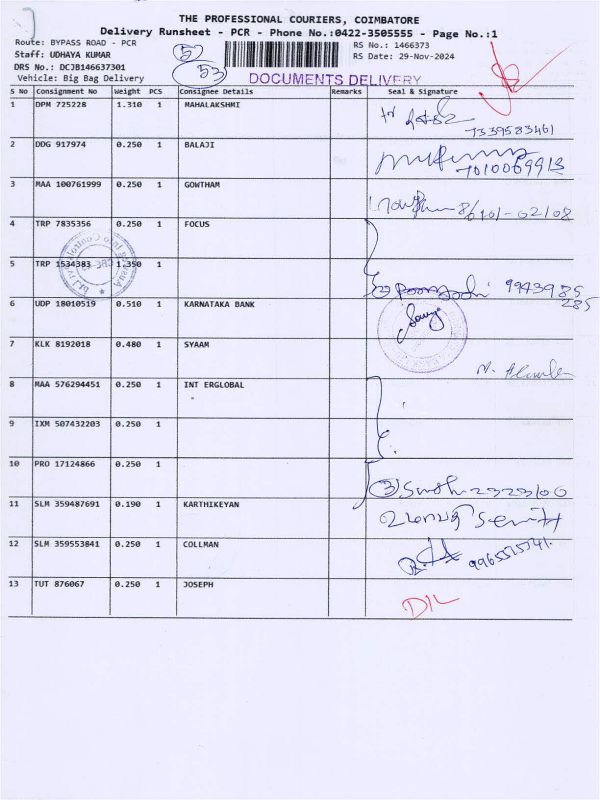 THE PROFESSIONAL COURIERS, COIMBATORE
Delivery Runsheet - PCR - Phone No.:0422-3505555 - Page No.:1
Route: BYPASS ROAD - PCR
Staff: UDHAYA KUMAR
DRS No.: DCJB146637301
Vehicle: Big Bag Delivery
52
53
RS No.: 1466373
RS Date: 29-Nov-2024
DOCUMENTS DELIVERY
S No Consignment No Weight PCS Consignee Details Remarks Seal & Signature
1 DPM 725228 1.310 1 MAHALAKSHMI
7339583461
2 DDG 917974 0.250 1 BALAJI
7010069913
3 MAA 100761999 0.250 1 GOWTHAM
4 TRP 7835356 0.250 1 FOCUS
5 TRP 1534383 1.350 1
6 UDP 18010519 0.510 1 KARNATAKA BANK
7 KLK 8192018 0.480 1 SYAAM
8 MAA 576294451 0.250 1 INT ERGLOBAL
"
9 IXM 507432203 0.250 1
10 PRO 17124866 0.250 1
11 SLM 359487691 0.190 1 KARTHIKEYAN
12 SLM 359553841 0.250 1 COLLMAN
13 TUT 876067 0.250 1 JOSEPH
D/L